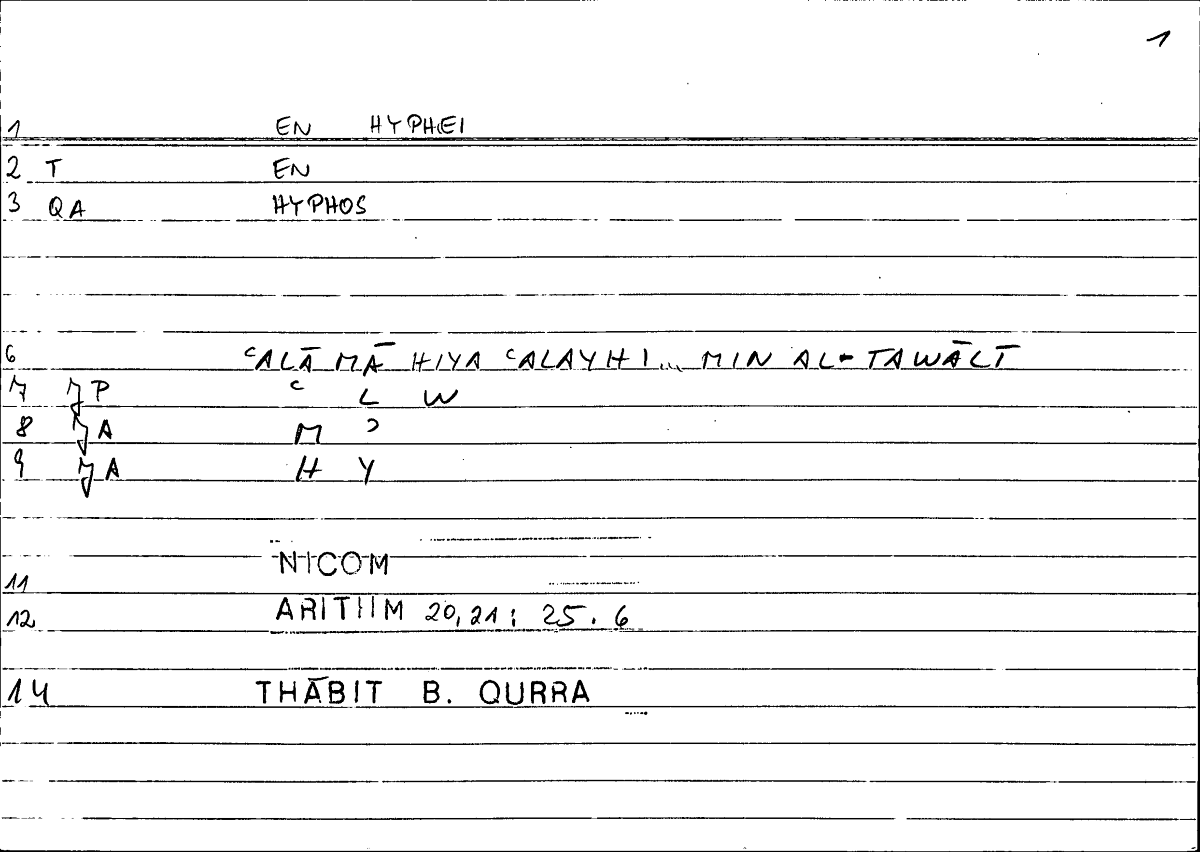 1
1 EN HYPHEI
2 T EN
3 QA HYPHOS
6 ʿALĀ MĀ HIYA ʿALAYHI... MIN AL-TAWĀLĪ
7 JP ʿ L W
8 JA M ʾ
9 JA H Y
11 NICOM
12 ARITHM 20,21; 25.6
14 THĀBIT B. QURRA